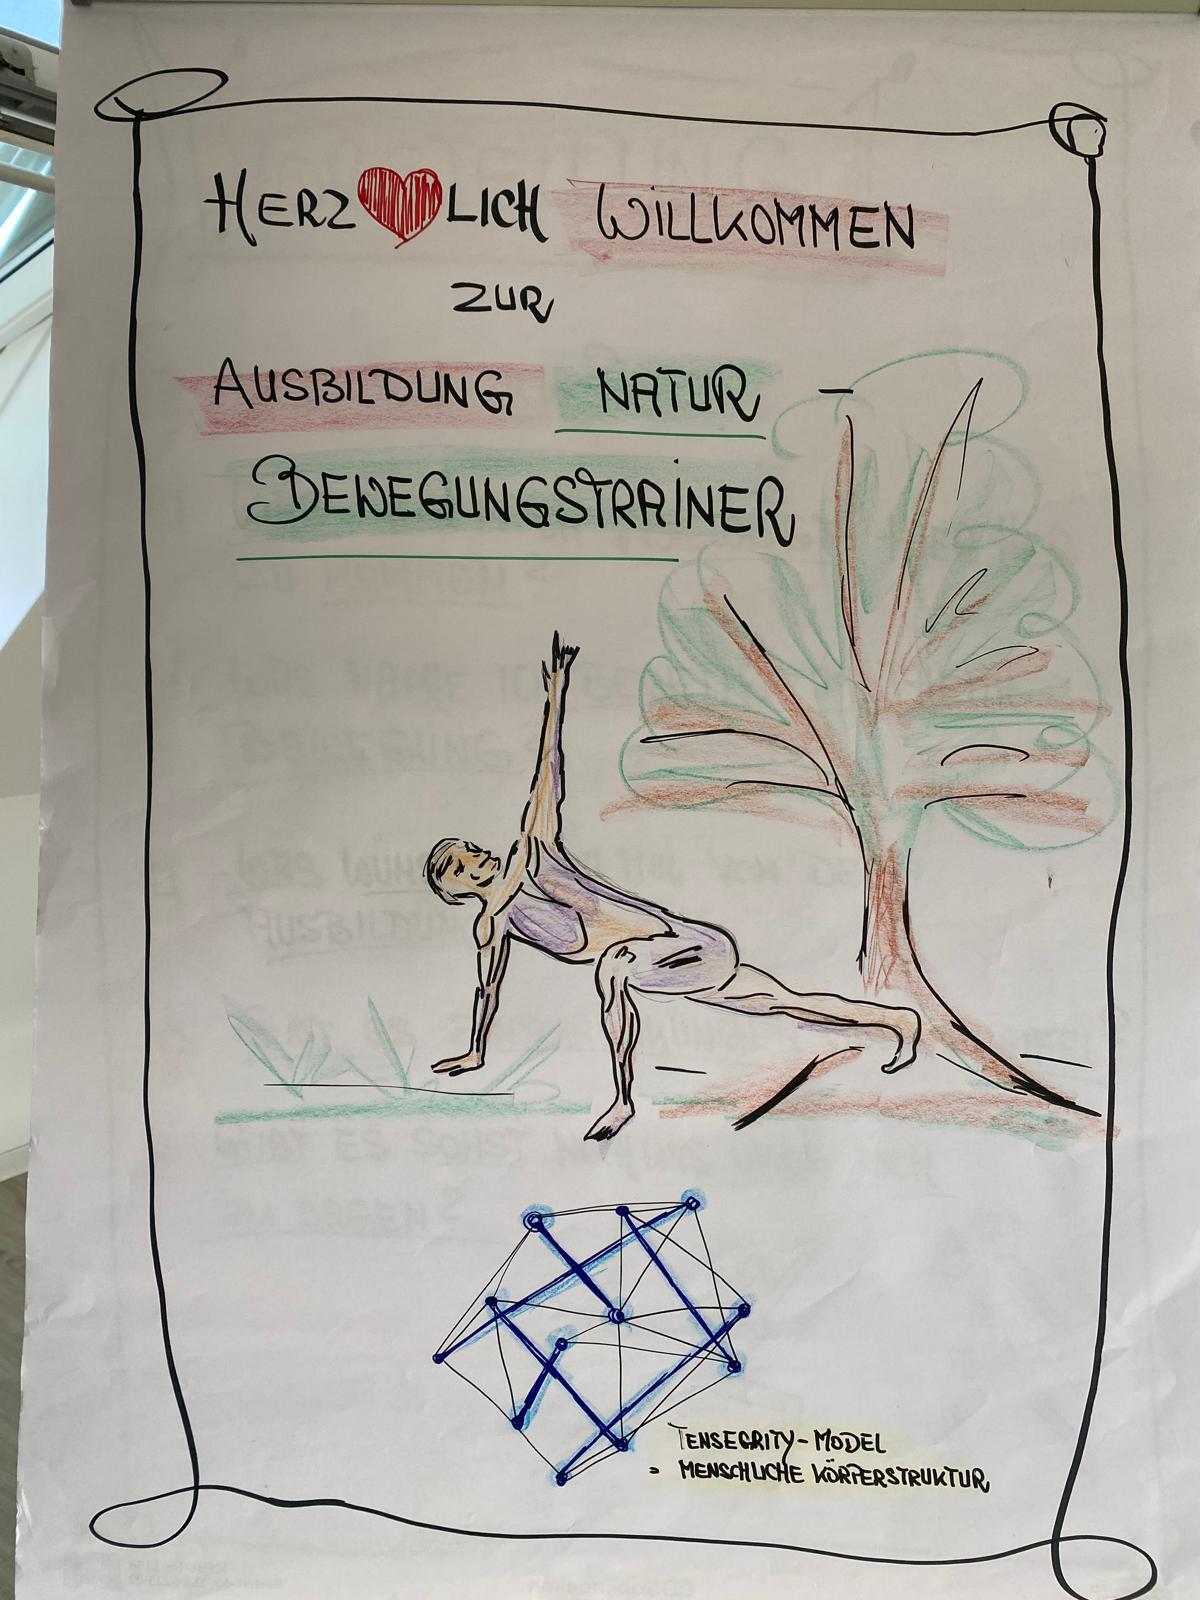 HERZ❤LICH WILLKOMMEN
ZUR
AUSBILDUNG NATUR -
BEWEGUNGSTRAINER
TENSEGRITY-MODEL
= MENSCHLICHE KÖRPERSTRUKTUR